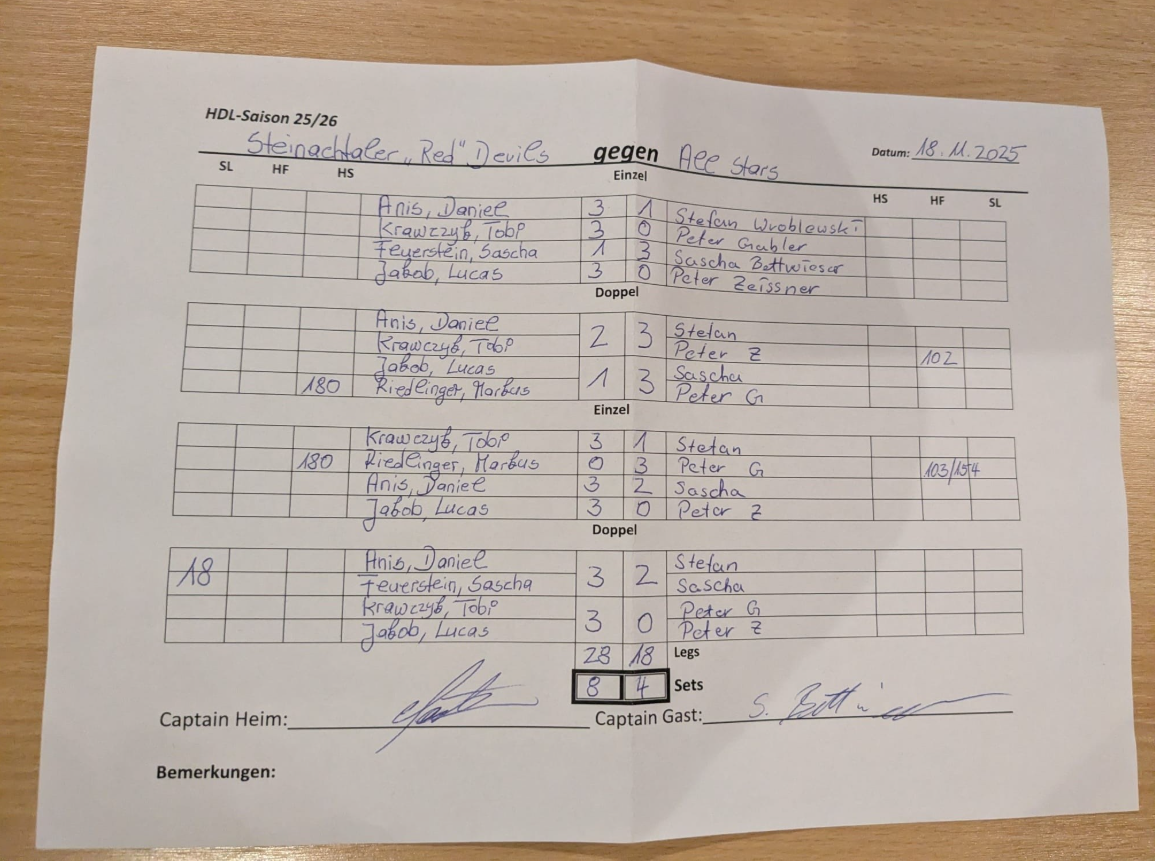 HDL-Saison 25/26
Steinachtaler „Red" Devils gegen All Stars Datum: 18.11.2025
SL HF HS Einzel HS HF SL
Anis, Daniel 3 1 Stefan Wroblewski
Krawczyk, Tobi 3 0 Peter Gabler
Feuerstein, Sascha 1 3 Sascha Bottwieser
Jakob, Lucas 3 0 Peter Zeissner
Doppel
Anis, Daniel 2 3 Stefan
Krawczyk, Tobi Peter Z 102
Jakob, Lucas 1 3 Sascha
180 Riedlinger, Markus Peter G
Einzel
Krawczyk, Tobi 3 1 Stefan
180 Riedlinger, Markus 0 3 Peter G 103/154
Anis, Daniel 3 2 Sascha
Jakob, Lucas 3 0 Peter Z
Doppel
18 Anis, Daniel 3 2 Stefan
Feuerstein, Sascha Sascha
Krawczyk, Tobi 3 0 Peter G
Jakob, Lucas Peter Z
28 18 Legs
8 4 Sets
Captain Heim: Captain Gast: S.
Bemerkungen: